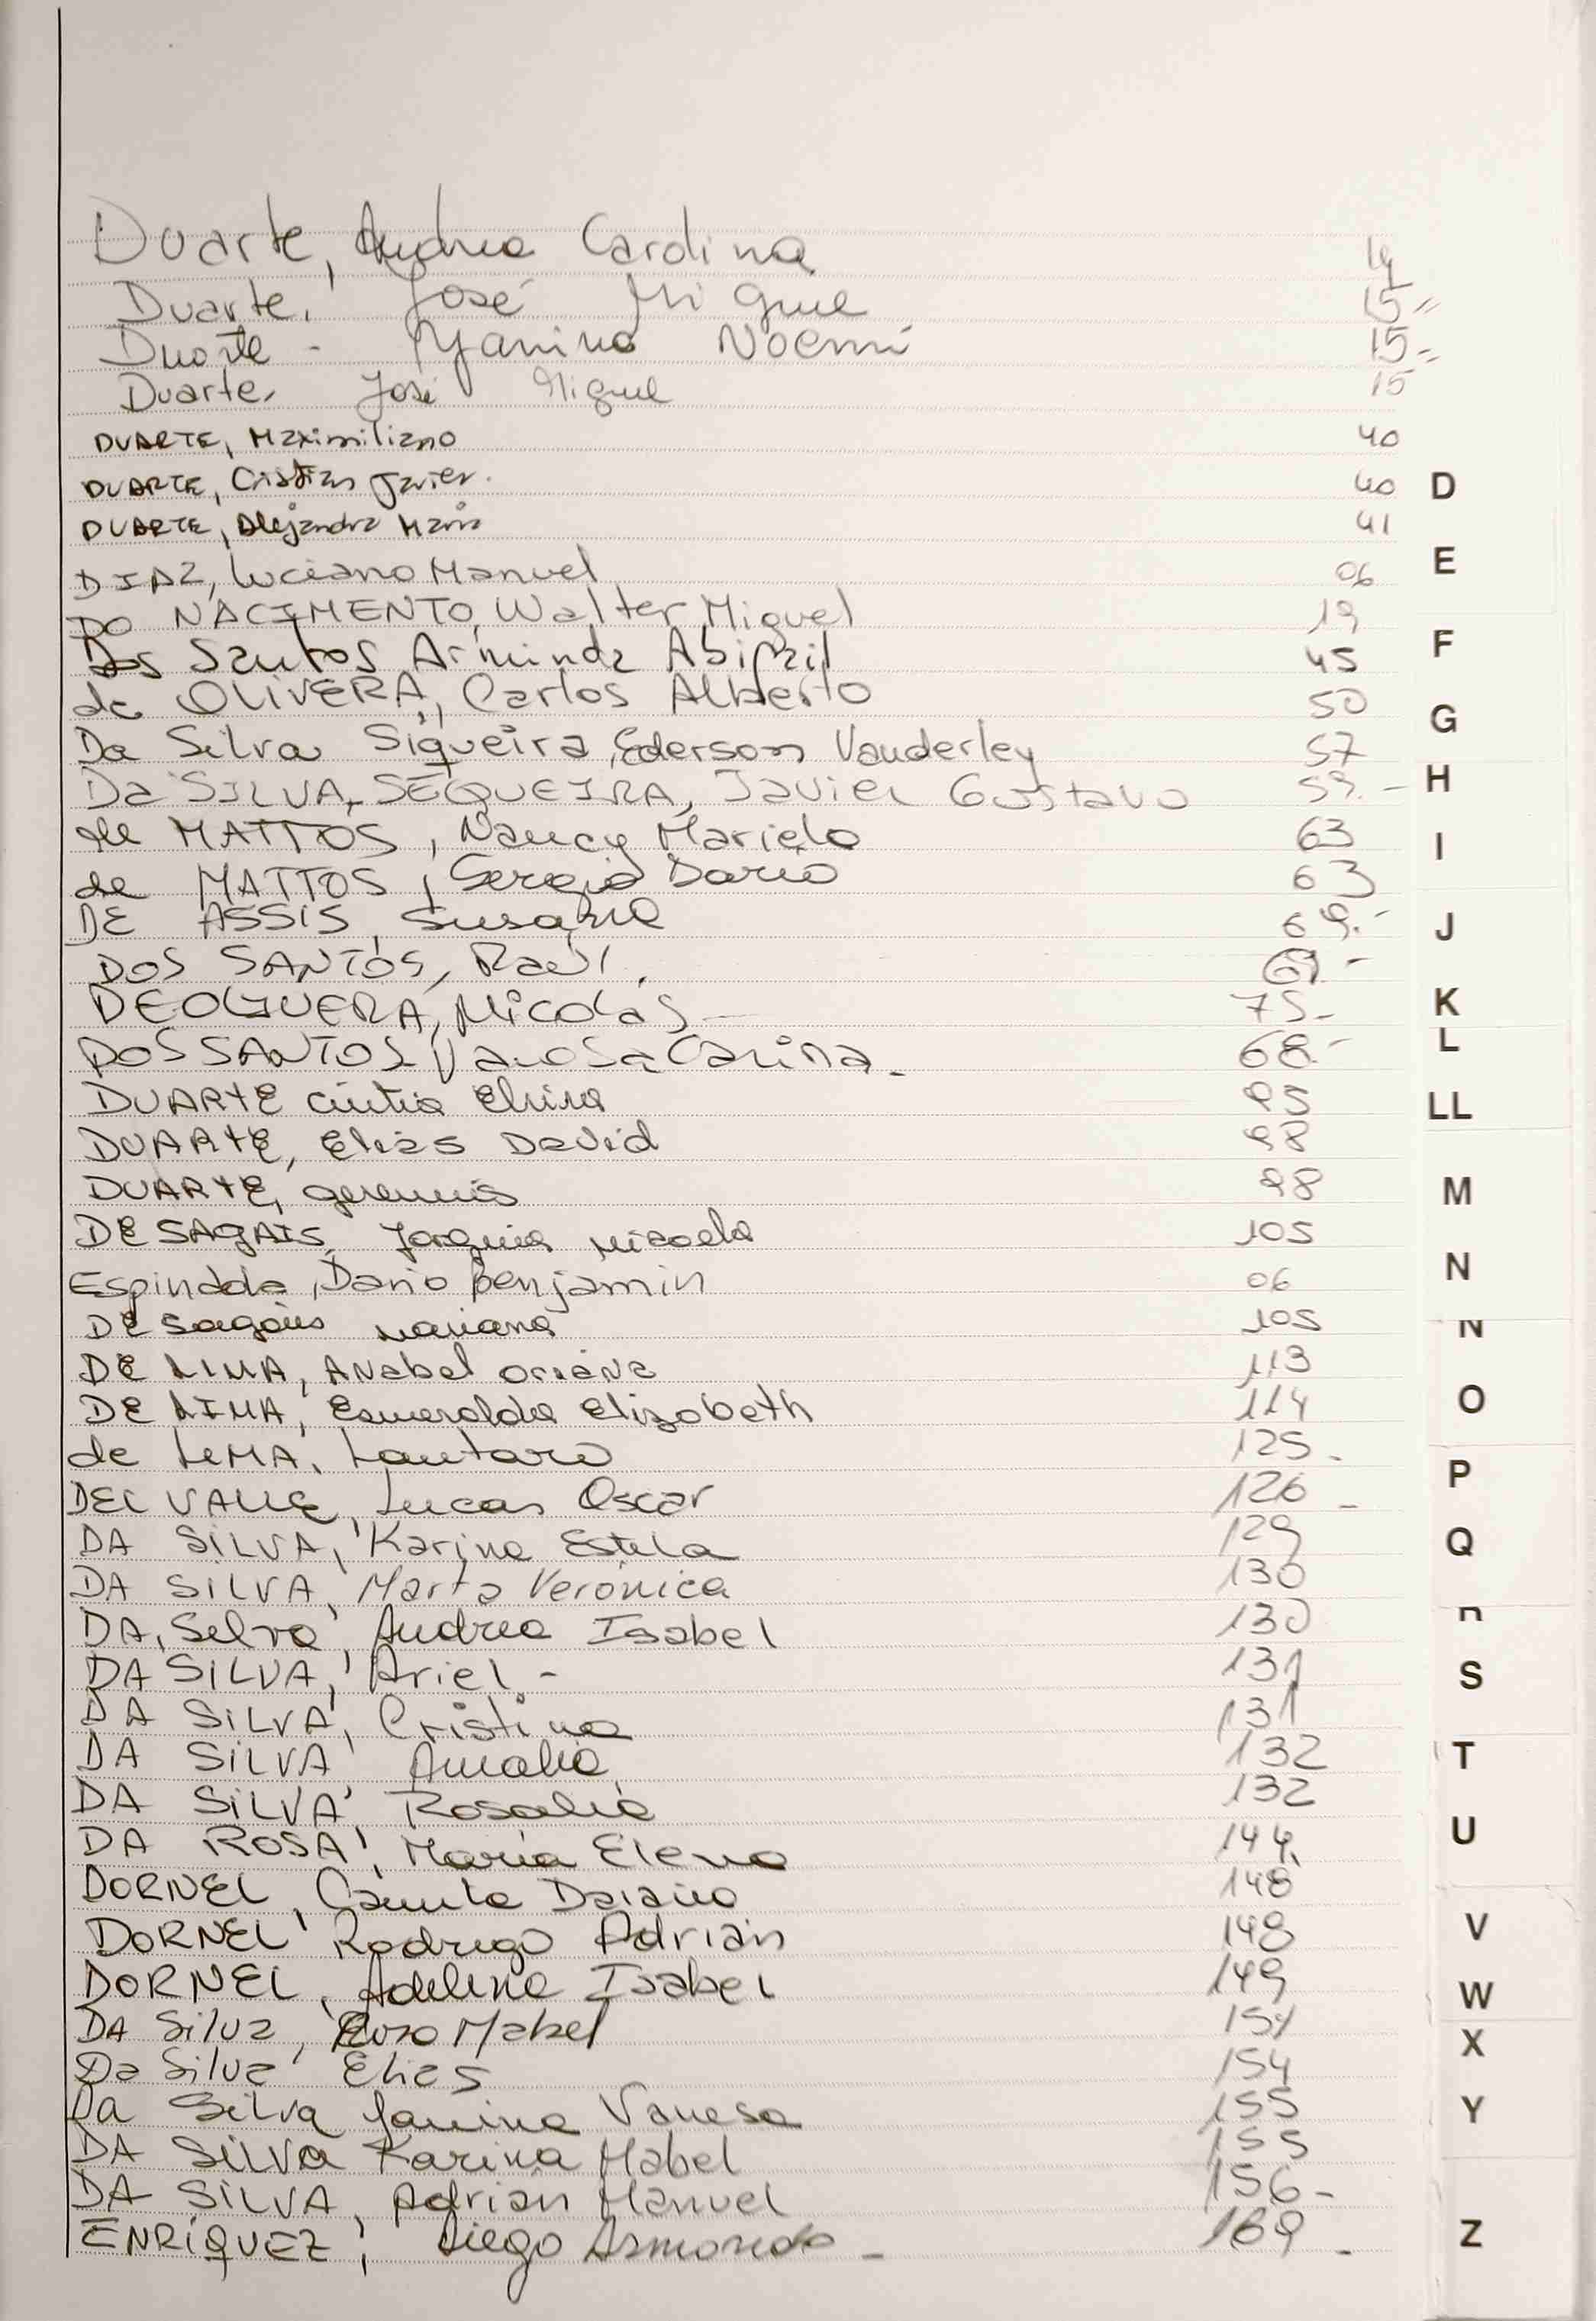 Duarte, Andrea Carolina 14
Duarte, José Miguel 15 "
Duarte - Yanina Noemí 15 -"
Duarte, José Miguel 15
DUARTE, Maximiliano 40
DUARTE, Cristian Javier. 40
D
DUARTE, Alejandra Maria 41
E
DIAZ, Luciano Manuel 06
DO NACIMENTO, Walter Miguel 19
F
Dos Santos Arminda Abigail 45
de OLIVERA, Carlos Alberto 50
G
Da Silva Siqueira, Ederson Vanderley 57
Da SILVA, SEQUEIRA, Javier Gustavo 59.-
H
de MATTOS, Nancy Mariela 63
I
de MATTOS, Sergio Dario 63
DE ASSIS, Susana 69.-
J
DOS SANTOS, Raúl. 69.-
DEOLGUERA, Nicolas - 75-
K
DOS SANTOS Vanosa Carina - 68.-
L
DUARTE Cintia Elvira 95
LL
DUARTE, Elias David 98
DUARTE, geremias 98
M
DE SAGAIS, Joaquina Micaela 105
Espindola, Dario Benjamin 06
N
DE Sagais Mariana 105
Ñ
DE LIMA, Anabel Oriana 113
DE LIMA, Esmeralda Elizabeth 114
O
de LiMA, Lautaro 125 -
DEL VALLE, Lucas Oscar 126 -
P
DA SILVA, Karina Estela 129
Q
DA SILVA, Marta Verónica 130
DA, Silva, Andrea Isabel 130
R
DA SILVA, Ariel - 131
S
DA SILVA, Cristina 131
DA SILVA, Amalia 132
T
DA SILVA, Rosalia 132
DA ROSA, María Elena 144
U
DORNEL, Camila Daiana 148
DORNEL, Rodrigo Adrián 148
V
DORNEL, Adelina Isabel 149
W
DA Silva, Mabel 154
X
Da Silva, Elias 154
Da Silva Janina Vanesa 155
Y
DA SILVA Karina Mabel 155
DA SILVA, Adrián Manuel 156-
ENRÍQUEZ, Diego Armando - 169 -
Z